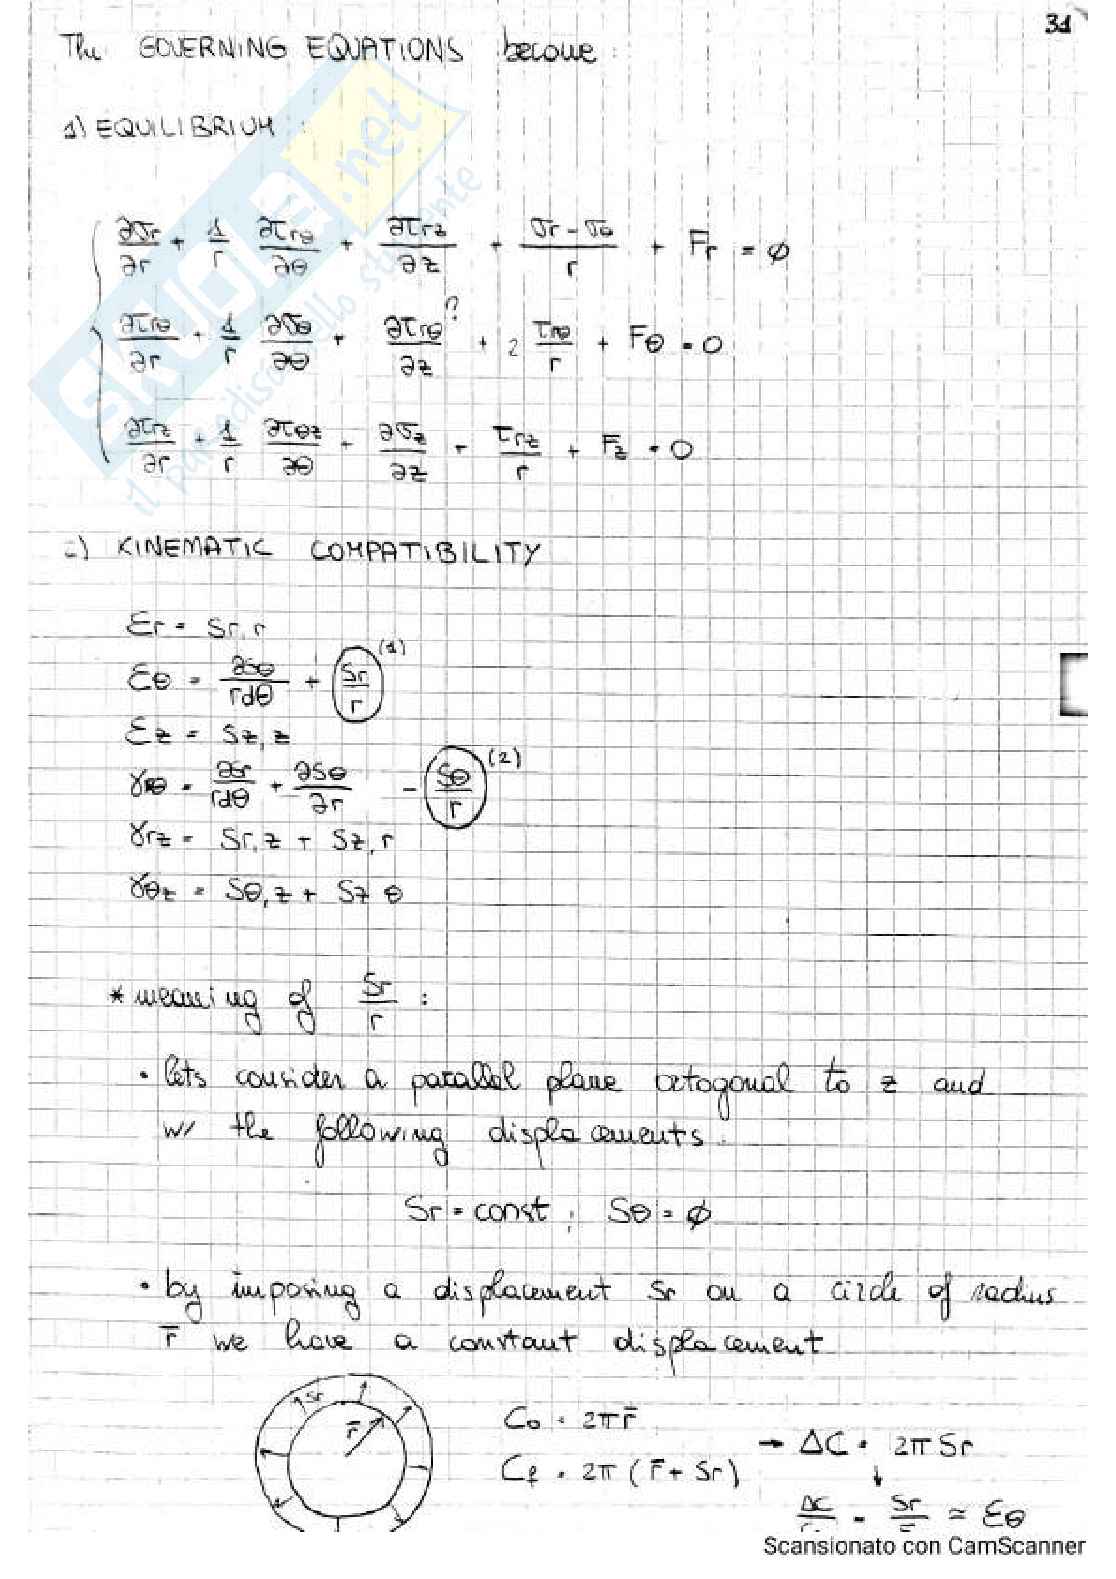 31
The GOVERNING EQUATIONS become :
1) EQUILIBRIUM :
∂σr/∂r + 1/r ∂τrθ/∂θ + ∂τrz/∂z + (σr - σθ)/r + Fr = ϕ
∂τrθ/∂r + 1/r ∂σθ/∂θ + ∂τrθ/∂z ? + 2 τrθ/r + Fθ = 0
∂τrz/∂r + 1/r ∂τθz/∂θ + ∂σz/∂z + τrz/r + Fz = 0
) KINEMATIC COMPATIBILITY
εr = Sr,r
εθ = ∂Sθ/rdθ + Sr/r (1)
εz = Sz,z
γrθ = ∂Sr/rdθ + ∂Sθ/∂r - Sθ/r (2)
γrz = Sr,z + Sz,r
γθz = Sθ,z + Sz θ
* meaning of Sr/r :
• lets consider a parallel plane ortogonal to z and
w/ the following displacements :
Sr = const ; Sθ = ϕ
• by imposing a displacement Sr on a circle of radius
r̄ we have a constant displacement
Sr r̄
C₀ = 2π r̄
Cf = 2π ( r̄ + Sr) → ΔC = 2π Sr
↓
ΔC = Sr ≃ εθ
SKUOLA.net
il paradiso dello studente
Scansionato con CamScanner